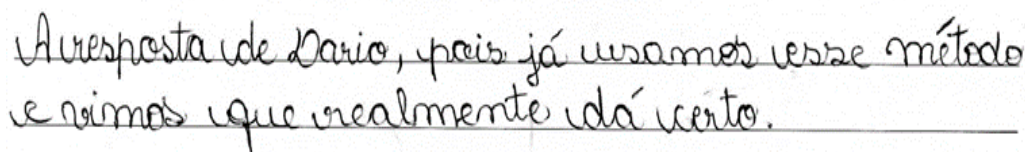 A resposta de Dario, pois já usamos esse método
e vimos que realmente dá certo.